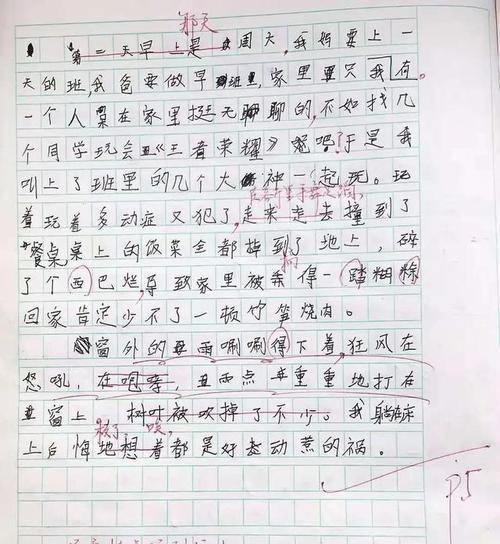 那天
第二天早上是周六,我妈要上一
天的班,我爸要做早班,家里只我有
一个人呆在家里挺无聊的,不如找几
个同学玩会《王者荣耀》吧!于是我
叫上了班里的几个大神一起玩。玩
着玩着多动症又犯了,走来走去撞到了
餐桌桌上的饭菜全都掉到了地上,碎
了个西巴烂,导致家里被我得一踏糊
回家肯定少不了一顿竹笋烧肉。
窗外的雨唰唰得下着,狂风在
怒吼,在咆哮,雨点重重地打在
窗上 树叶被吹掉了不少。我躺床
上后悔地想着都是好动惹的祸。